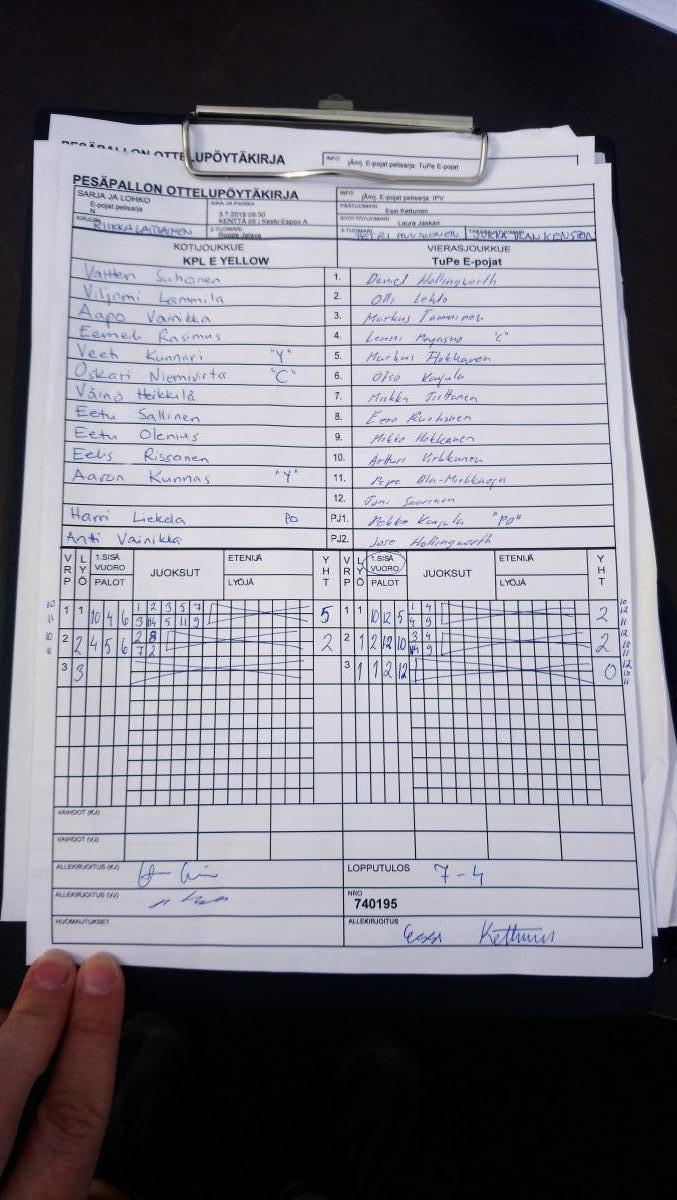 PESÄPALLON OTTELUPÖYTÄKIRJA
INFO jÄmj. E-pojat pelisarja: TuPe E-pojat
PESÄPALLON OTTELUPÖYTÄKIRJA
INFO jÄmj. E-pojat pelisarja: IPV
SARJA JA LOHKO E-pojat pelisarja N
AIKA JA PAIKKA 3.7.2015 09:30 KENTTÄ 05 | Keski Espoo A
PÄÄTUOMARI Essi Kettunen
SYÖTTÖTUOMARI Laura Jaskari
KIRJURI RIIKKA LAITIAINEN
2-TUOMARI Roope Jalava
3-TUOMARI PETRI HUUSKONEN
JUKKA BLANKENSTEN
KOTIJOUKKUE VIERASJOUKKUE
KPL E YELLOW TuPe E-pojat
Valtteri Suhonen 1. Daniel Hollingworth
Viljami Lammila 2. Olli Lehto
Aapo Vainikka 3. Markus Tamminen
Eemeli Rasimus 4. Lenni "C"
Veeti Kunnari "Y" 5. Markus Hokkanen
Oskari Niemivirta "C" 6. Otso Karjala
Väinö Heikkilä 7. Miikka
Eetu Sallinen 8. Eero Ruohonen
Eetu Olenius 9. Mikko Hokkanen
Eelis Rissanen 10. Artturi Virkkunen
Aaron Kunnas "Y" 11. Pepe Ola-Miekkaoja
12. Joni Saarinen
Harri Liekola PO PJ1. Pekka Karjala "PO"
Antti Vainikka PJ2. Jose Hollingworth
VRP LYÖ 1.SISÄ VUORO PALOT JUOKSUT ETENIJÄ LYÖJÄ YHT VRP LYÖ 1.SISÄ VUORO PALOT JUOKSUT ETENIJÄ LYÖJÄ YHT
10 11 1 1 10 4 6 1 2 3 5 7 5 1 1 10 12 5 1 4 2 10 12 11
3 14 5 11 9 4 9
10 11 2 2 4 5 6 2 8 2 2 1 2 12 10 3 4 2 12 10 11
7 2 14 9
3 3 3 1 1 2 12 0 12 10 11
VAIHDOT (KJ)
VAIHDOT (VJ)
ALLEKIRJOITUS (KJ) LOPPUTULOS 7-4
ALLEKIRJOITUS (VJ) NRO 740195
HUOMAUTUKSET ALLEKIRJOITUS Essi Kettunen